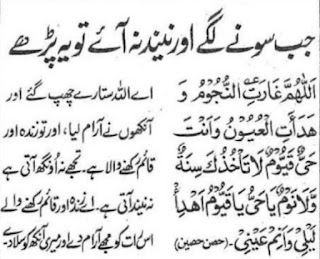 جب سونے لگے اور نیند نہ آئے تو یہ پڑھے
اَللّٰهُمَّ غَارَتِ النُّجُوْمُ وَ
هَدَأَتِ الْعُيُوْنُ وَاَنْتَ
حَیٌّ قَيُّوْمٌ لَا تَاْخُذُكَ سِنَةٌ
وَّلَا نَوْمٌ يَا حَیُّ يَا قَيُّوْمُ اَهْدِأْ
لَيْلِیْ وَاَنِمْ عَيْنِیْ۔ (حصن حصین)
اے اللہ ستارے چھپ گئے اور
آنکھوں نے آرام لیا، اور تو زندہ اور
قائم رکھنے والا ہے۔ تجھے نہ اُونگھ آتی ہے
نہ نیند آتی ہے۔ اے زندہ اور قائم رکھنے والے
اس رات کو مجھے آرام دے اور میری آنکھ کو سلا دے۔